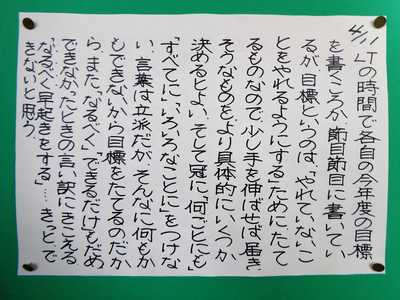 LTの時間で各自の今年度の目標
を書くころが、節目節目に書いてい
るが目標というのは、「やれていないこ
とをやれるようにする」ためにたて
るものなので、少し手を伸ばせば届き
そうなものをより具体的にいくつか
決めるとよい。そして冠に「何ごとにも」
「すべてに」「いろいろなことに」をつけな
い。言葉は立派だが、そんなに何もか
もできないから目標をたてるのだか
ら。また、「なるべく」「できるだけ」もだめ
できなかったときの言い訳にきこえる
「なるべく早起きをする」‥‥きっとで
きないと思う。